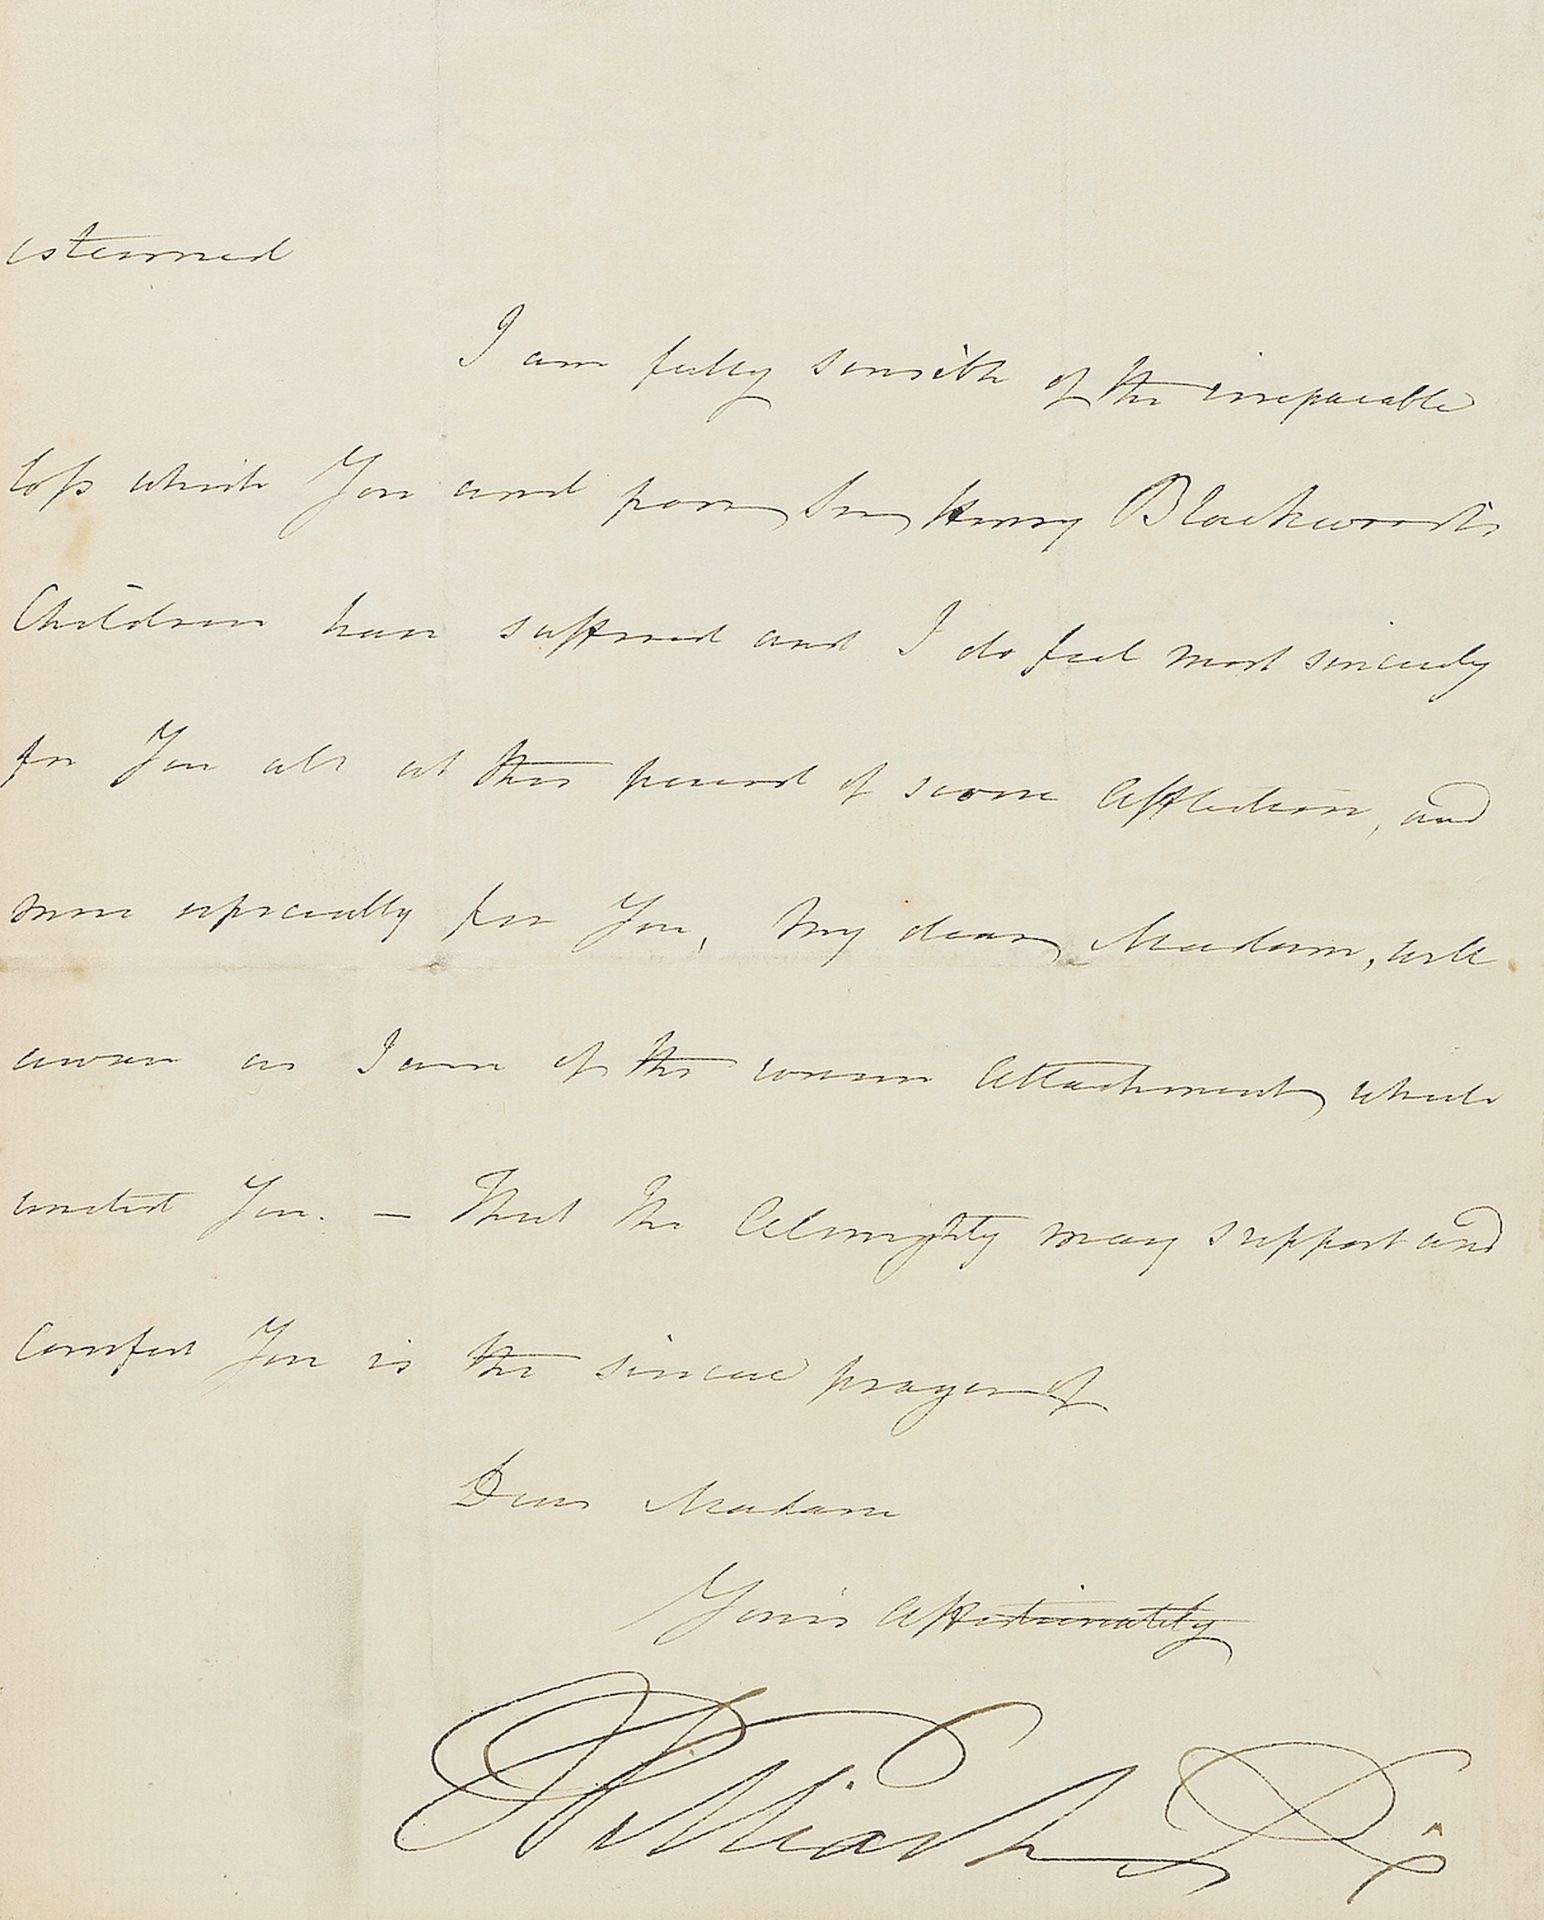 esteemed
I am fully sensible of the irreparable
loss which You and poor Sir Henry Blackwood's
Children have suffered and I do feel most sincerely
for You all at this period of severe Affliction, and
more especially for You, My dear Madam, well
aware as I am of the warm Attachment which
united You. — That the Almighty may support and
Comfort You is the sincere prayer of
Dear Madam
Yours Affectionately
William R